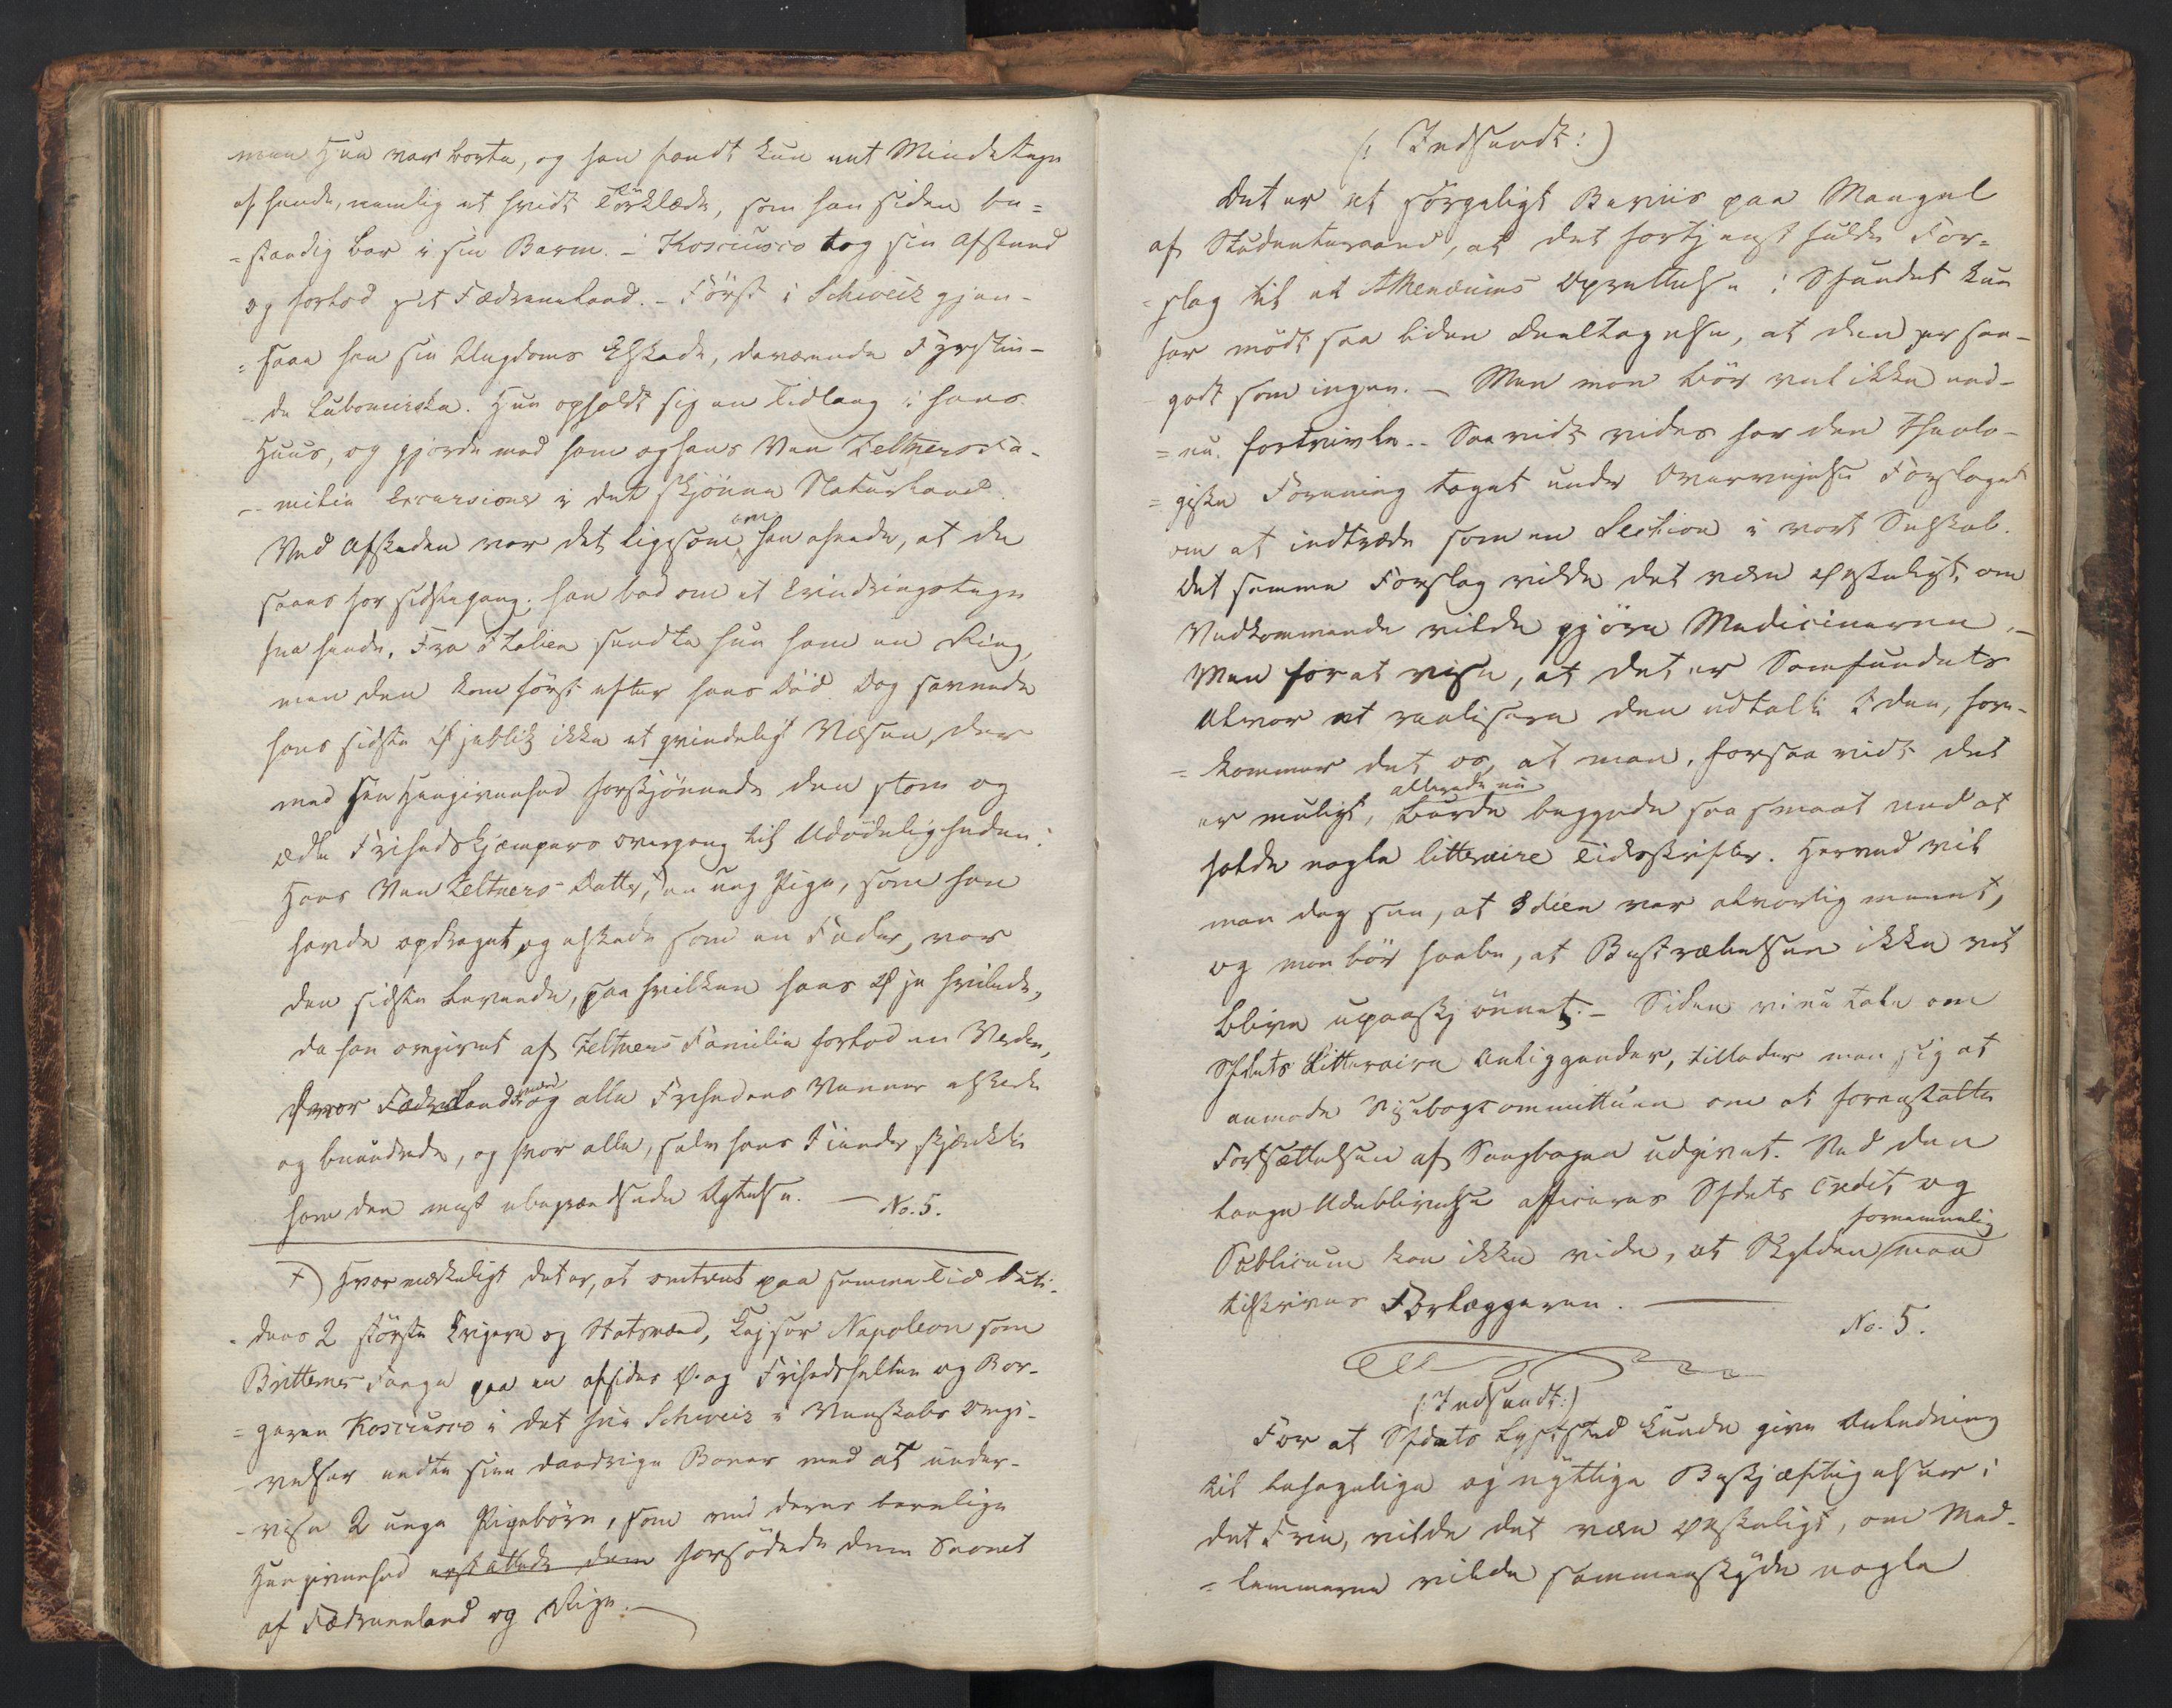 men Hun var borte, og han fandt kun eet Mindetegn
af hende, nemlig et hvidt Törklæde, som han siden be=
=standig bar i sin Barm. – Kosciusco tog sin Afskeed
og forlod sit Fædreneland. – Först i Schweiz gjen-
=saae han sin Ungdoms Elskede, daværende Fyrstin-
-de Lubomirska. Hun opholdt sig en Tidlang i hans
Huus, og gjorde med ham og hans Ven Zeltners Fa-
-milie Excursioner i det skjönne Naturland.
Ved Afskeden var det ligesom om han ahnede, at de
saaes for sidstegang; han bad om et Erindringstegn
fra hende. Fra Italien sendte hun ham en Ring,
men den kom först efter hans Död. Dog savnede
hans sidste Öjeblik ikke et qvindeligt Væsen, der
med sin Hengivenhed forskjönnede den store og
ædle Frihedskjæmpers Overgang til Udödeligheden:
Hans Ven Zeltners Datter, en ung Pige, som han
havde opdraget og elskede som en Fader, var
den sidste Levende, paa hvilken hans Öje hvilede,
da han omgivet af Zeltners Familie forlod en Verden,
hvor Fædrelandet og alle Frihedens Venner elskede
og beundrede, og hvor alle, selv hans Fiender skjænkte
ham den meest ubegrændsede Agtelse. — No. 5.
+) Hvor mærkeligt det er, at omtrent paa samme Tid Nuti-
-dens 2 störste Krigere og Statsmænd, Kejser Napoleon som
Britternes Fange paa en afsides Ö og Frihedshelten og Bor-
=geren Kosciusco i det frie Schweiz i Venskabs Omgi-
-velser endte sine daadrige Baner med at under-
-vise 2 unge Pigebörn, som ved deres barnlige
Hengivenhed erstattede dem forsödede dem Savnet
af Fædreneland og Rige. —
(: Indsendt :)
Det er et sörgeligt Beviis paa Mangel
af Studenteraand, at det fortjenstfulde For=
=slag til et Athenæums Oprettelse i Sfundet kun
har mödt saa liden Deeltagelse, at den er saa-
godt som ingen. – Men man bör vel ikke end-
=nu fortvivle. – Saavidt vides har den theolo-
=giske Forening taget under Overvejelse Forslaget
om at indtræde som en Section i vort Selskab.
Det samme Forslag vilde det være önskeligt, om
Vedkommende vilde gjöre Medicinerne. –
Men for at vise, at det er Samfundets
Alvor at realisere den udtalte Idee, fore-
=kommer det os, at man, forsaavidt det
er muligt, allerede nu burde begynde saa smaat med at
holde nogle litteraire Tidsskrifter. Herved vil
man dog see, at Ideen var alvorlig meent,
og man bör haabe, at Bestræbelsen ikke vil
blive upaaskjönnet. – Siden vi nu tale om
Sfdets litteraire Anliggender, tillader man sig at
anmode Visebogscommitteen om at foranstalte
Fortsættelsen af Sangbogen udgivet. Ved den
lange Udeblivelse afficeres Sfdets Credit, og
Publicum kan ikke vide, at Skylden fornemmelig maa
tilskrives Forlæggeren. —
No. 5.
(: Indsendt :)
For at Sfdets Lyststed kunde give Anledning
til behagelige og nyttige Beskjæftigelser i
det Frie, vilde det være önskeligt, om Med-
=lemmerne vilde sammenskyde nogle